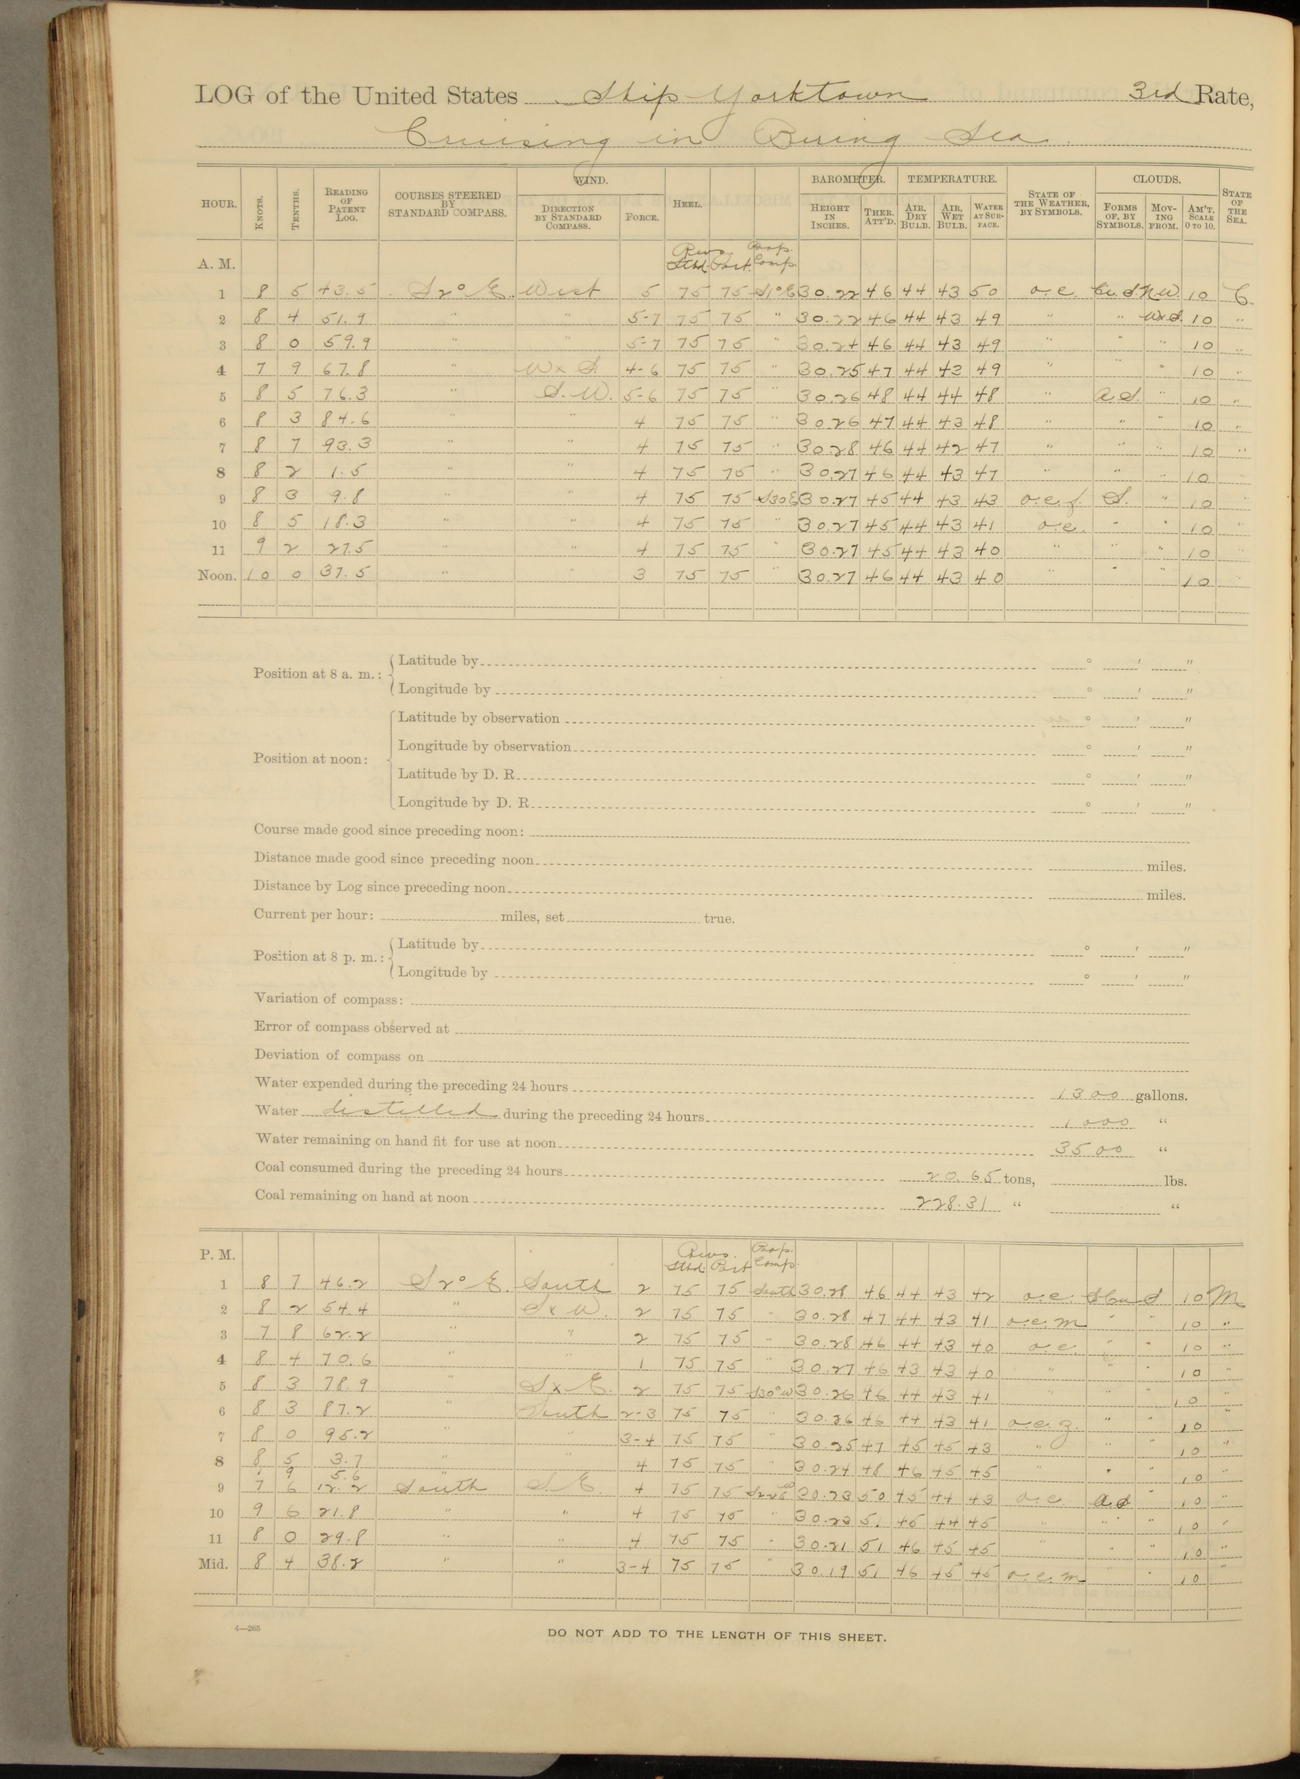 LOG of the United States Ship Yorktown 3rd Rate,
Cruising in Bering Sea.
HOUR. KNOTS. TENTHS. READING OF PATENT LOG. COURSES STEERED BY STANDARD COMPASS. WIND. DIRECTION BY STANDARD COMPASS. FORCE. HEEL. BAROMETER. HEIGHT IN INCHES. THER. ATT'D. TEMPERATURE. AIR, DRY BULB. AIR, WET BULB. WATER AT SURFACE. STATE OF THE WEATHER, BY SYMBOLS. CLOUDS. FORMS OF, BY SYMBOLS. MOVING FROM. AM'T. SCALE 0 TO 10. STATE OF THE SEA.
A. M. Revs. Stbd. Port. Poop. Comp.
1 8 5 43.5 S 2° E. West 5 75 75 S1°E 30.22 46 44 43 50 o.c. Cu.S. N.W. 10 C.
2 8 4 51.9 " " 5-7 75 75 " 30.22 46 44 43 49 " " WxS. 10 "
3 8 0 59.9 " " 5-7 75 75 " 30.24 46 44 43 49 " " " 10 "
4 7 9 67.8 " W x S. 4-6 75 75 " 30.25 47 44 43 49 " " " 10 "
5 8 5 76.3 " S.W. 5-6 75 75 " 30.26 48 44 44 48 " A.S. " 10 "
6 8 3 84.6 " " 4 75 75 " 30.26 47 44 43 48 " " " 10 "
7 8 7 93.3 " " 4 75 75 " 30.28 46 44 42 47 " " " 10 "
8 8 2 1.5 " " 4 75 75 " 30.27 46 44 43 47 " " " 10
9 8 3 9.8 " " 4 75 75 S30E 30.27 45 44 43 43 o.c.f. S. " 10 "
10 8 5 18.3 " " 4 75 75 " 30.27 45 44 43 41 o.c. " " 10 "
11 9 2 27.5 " " 4 75 75 " 30.27 45 44 43 40 " " " 10 "
Noon. 10 0 37.5 " " 3 75 75 " 30.27 46 44 43 40 " " " 10 "
Position at 8 a. m.: Latitude by ° ′ ″
Longitude by ° ′ ″
Position at noon: Latitude by observation ° ′ ″
Longitude by observation ° ′ ″
Latitude by D. R. ° ′ ″
Longitude by D. R. ° ′ ″
Course made good since preceding noon:
Distance made good since preceding noon miles.
Distance by Log since preceding noon miles.
Current per hour: miles, set true.
Position at 8 p. m.: Latitude by ° ′ ″
Longitude by ° ′ ″
Variation of compass:
Error of compass observed at
Deviation of compass on
Water expended during the preceding 24 hours 1300 gallons.
Water distilled during the preceding 24 hours 1000 "
Water remaining on hand fit for use at noon 3500 "
Coal consumed during the preceding 24 hours 20.65 tons, lbs.
Coal remaining on hand at noon 228.31 " "
P. M. Revs. Stbd. Port Poop. Comp.
1 8 7 46.2 S 2° E. South 2 75 75 South 30.28 46 44 43 42 o.c. S.Cu S 10 M
2 8 2 54.4 " S x W. 2 75 75 " 30.28 47 44 43 41 o.c.m " " 10 "
3 7 8 62.2 " " 2 75 75 " 30.28 46 44 43 40 o.c. " " 10 "
4 8 4 70.6 " " 1 75 75 " 30.27 46 43 43 40 " " " 10 "
5 8 3 78.9 " S x E. 2 75 75 S30°W 30.26 46 44 43 41 " " " 10 "
6 8 3 87.2 " South 2-3 75 75 " 30.26 46 44 43 41 o.c.z. " " 10 "
7 8 0 95.2 " " 3-4 75 75 " 30.25 47 45 45 43 " " " 10 "
8 8 5 3.7 " " 4 75 75 " 30.24 48 46 45 45 " " " 10 "
1 9 5.6
9 7 6 12.2 South S.E. 4 75 75 30.23 50 45 44 43 o.c. A.S " 10 "
10 9 6 21.8 " " 4 75 75 " 30.23 51 45 44 45 " " " 10 "
11 8 0 29.8 " " 4 75 75 " 30.21 51 46 45 45 " " " 10 "
Mid. 8 4 38.2 " " 3-4 75 75 " 30.19 51 46 45 45 o.c.m " " 10 "
4—265
DO NOT ADD TO THE LENGTH OF THIS SHEET.